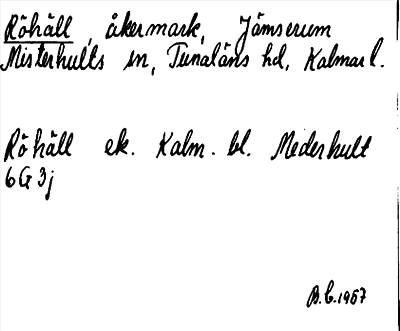 Röhäll, åkermark, Jämserum
Misterhults sn, Tunaläns hd, Kalmar l.
Röhäll ek. Kalm. bl. Mederhult
6G 3j
B.C. 1967